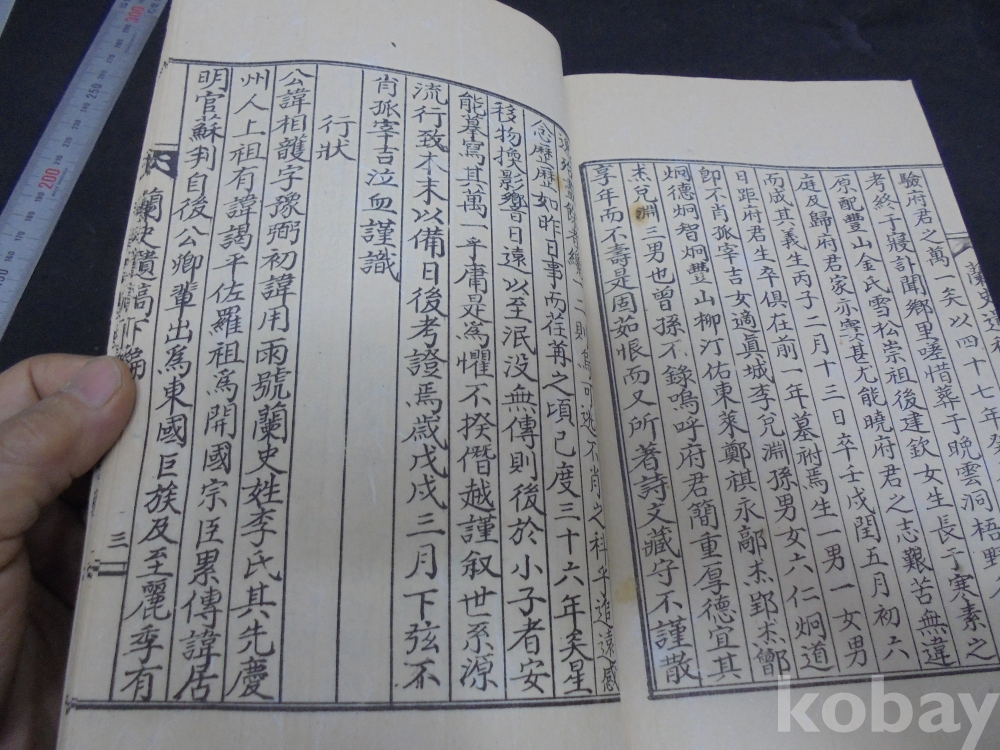 驗府君之萬一矣以四十七年
考終于寢訃聞鄕里嗟惜葬于晩雲洞梧野
原配豐山金氏雪松崇祖後建欽女生長于寒素之
庭及歸府君家亦寠甚尤能曉府君之志艱苦無違
而成其義生丙子二月十三日卒壬戌閏五月初六
日距府君生卒俱在前一年墓祔焉生一男一女男
卽不肖孤宰吉女適眞城李兌淵孫男女六仁炯道
炯德炯智炯豐山柳汀佑東萊鄭祺永鄗杰郢杰鄫
杰兌淵三男也曾孫不錄嗚呼府君簡重厚德宜其
享年而不壽是固茹恨而又所著詩文藏守不謹散
一二則烏可逃不肖之科乎追遠感
念歷歷如昨日事而荏苒之頃已度三十六年矣星
移物換影響日遠以至泯没無傳則後於小子者安
能摹寫其萬一乎庸是爲懼不揆僭越謹叙世系源
流行致本末以備日後考證焉歲戊戌三月下弦不
肖孤宰吉泣血謹識
行狀
公諱相頀字豫弼初諱用雨號蘭史姓李氏其先慶
州人上祖有諱謁平佐羅祖爲開國宗臣累傳諱居
明官蘇判自後公卿輩出爲東國巨族及至麗季有
蘭史遺稿下編
三
kobay